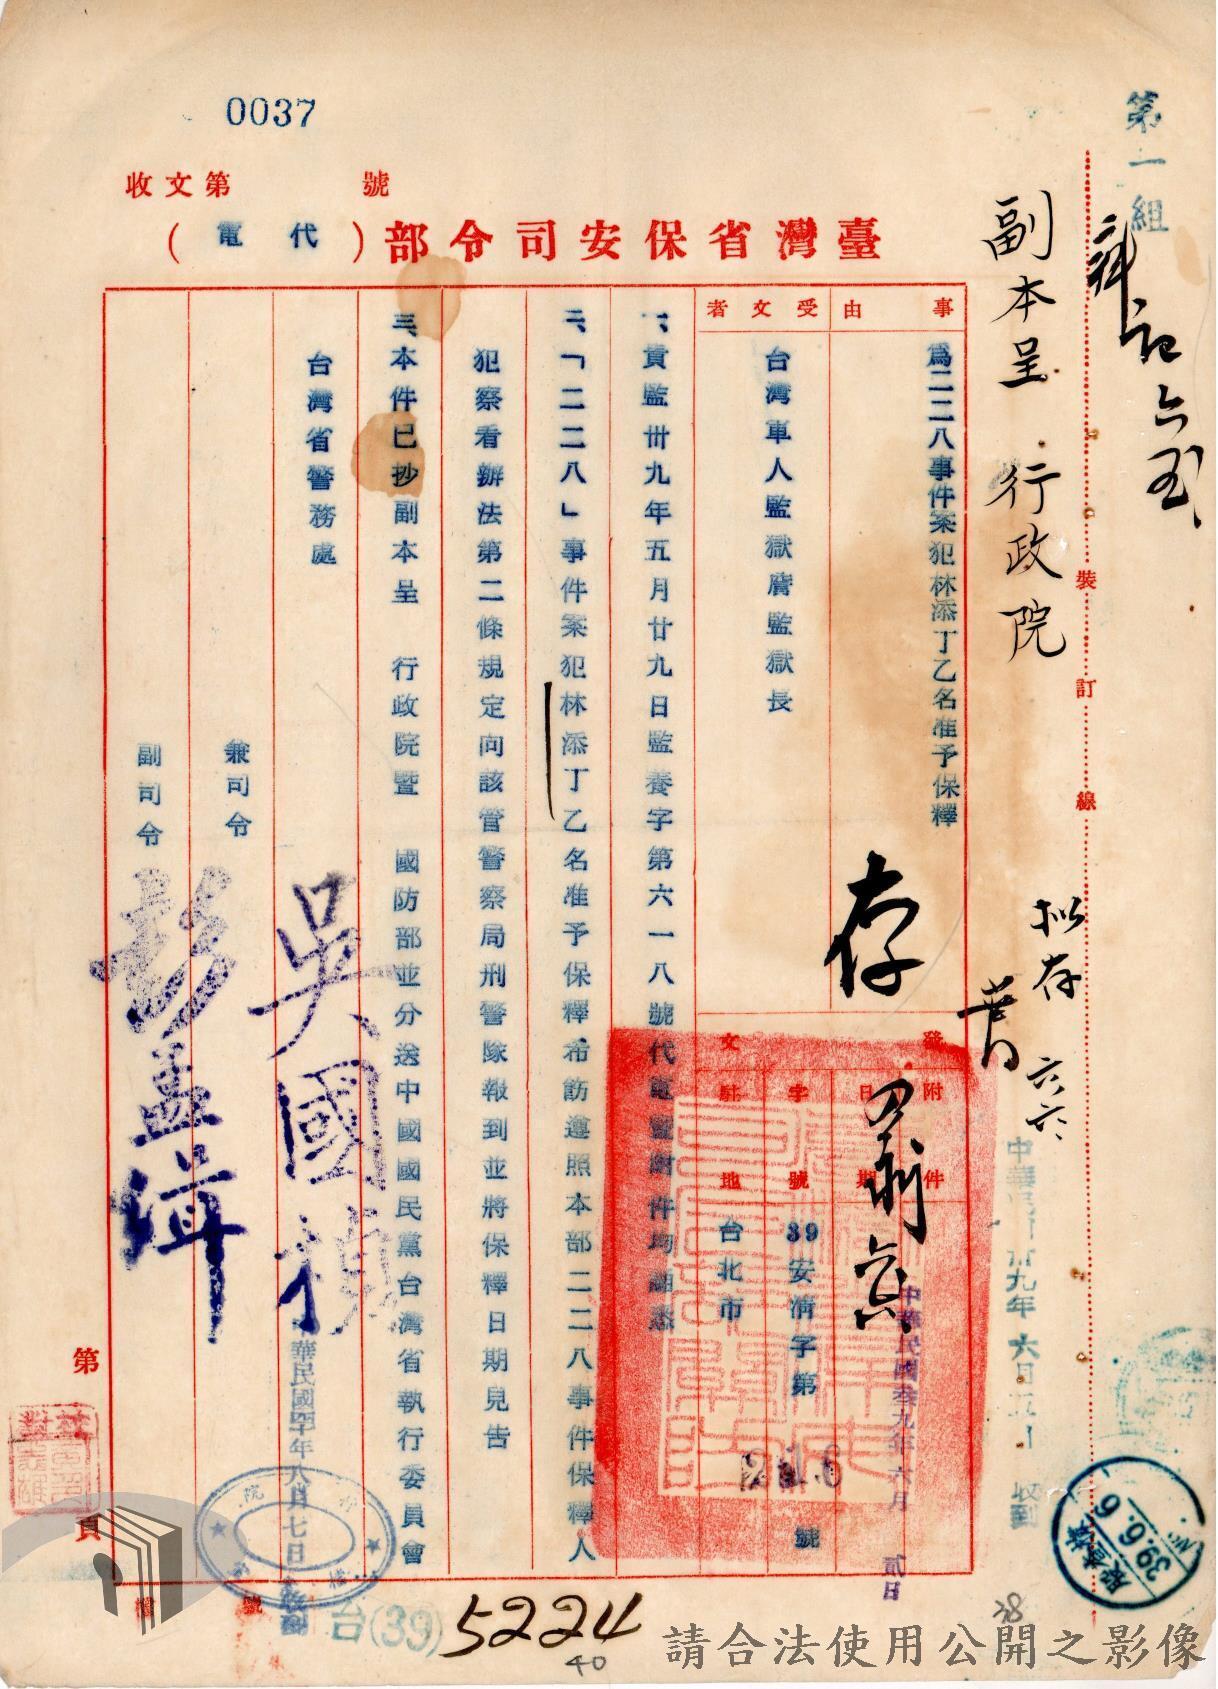 0037
收文第 號
臺灣省保安司令部（代電）
第一組
副本呈 行政院
裝 訂 線
事由
為二二八事件案犯林添丁乙名准予保釋
受文者
台灣軍人監獄唐監獄長
存
拟存
六六
發文
附件
日期
中華民國叁九年六月 貳日
字號
39安清字第 號
駐地
台北市
一、貴監卅九年五月廿九日監養字第六一八號代電暨附件均謝悉
二、「二二八」事件案犯林添丁乙名准予保釋希飭遵照本部二二八事件保釋人
犯察看辦法第二條規定向該管警察局刑警隊報到並將保釋日期見告
三、本件已抄副本呈 行政院暨 國防部並分送中國國民黨台灣省執行委員會
台灣省警務處
兼司令 吳國禎
副司令 彭孟緝
中華民國廿九年六月五日 收到
39.6.6
華民國四十年八月七日
第 頁
檔 號
台(39) 5224
40
38
請合法使用公開之影像